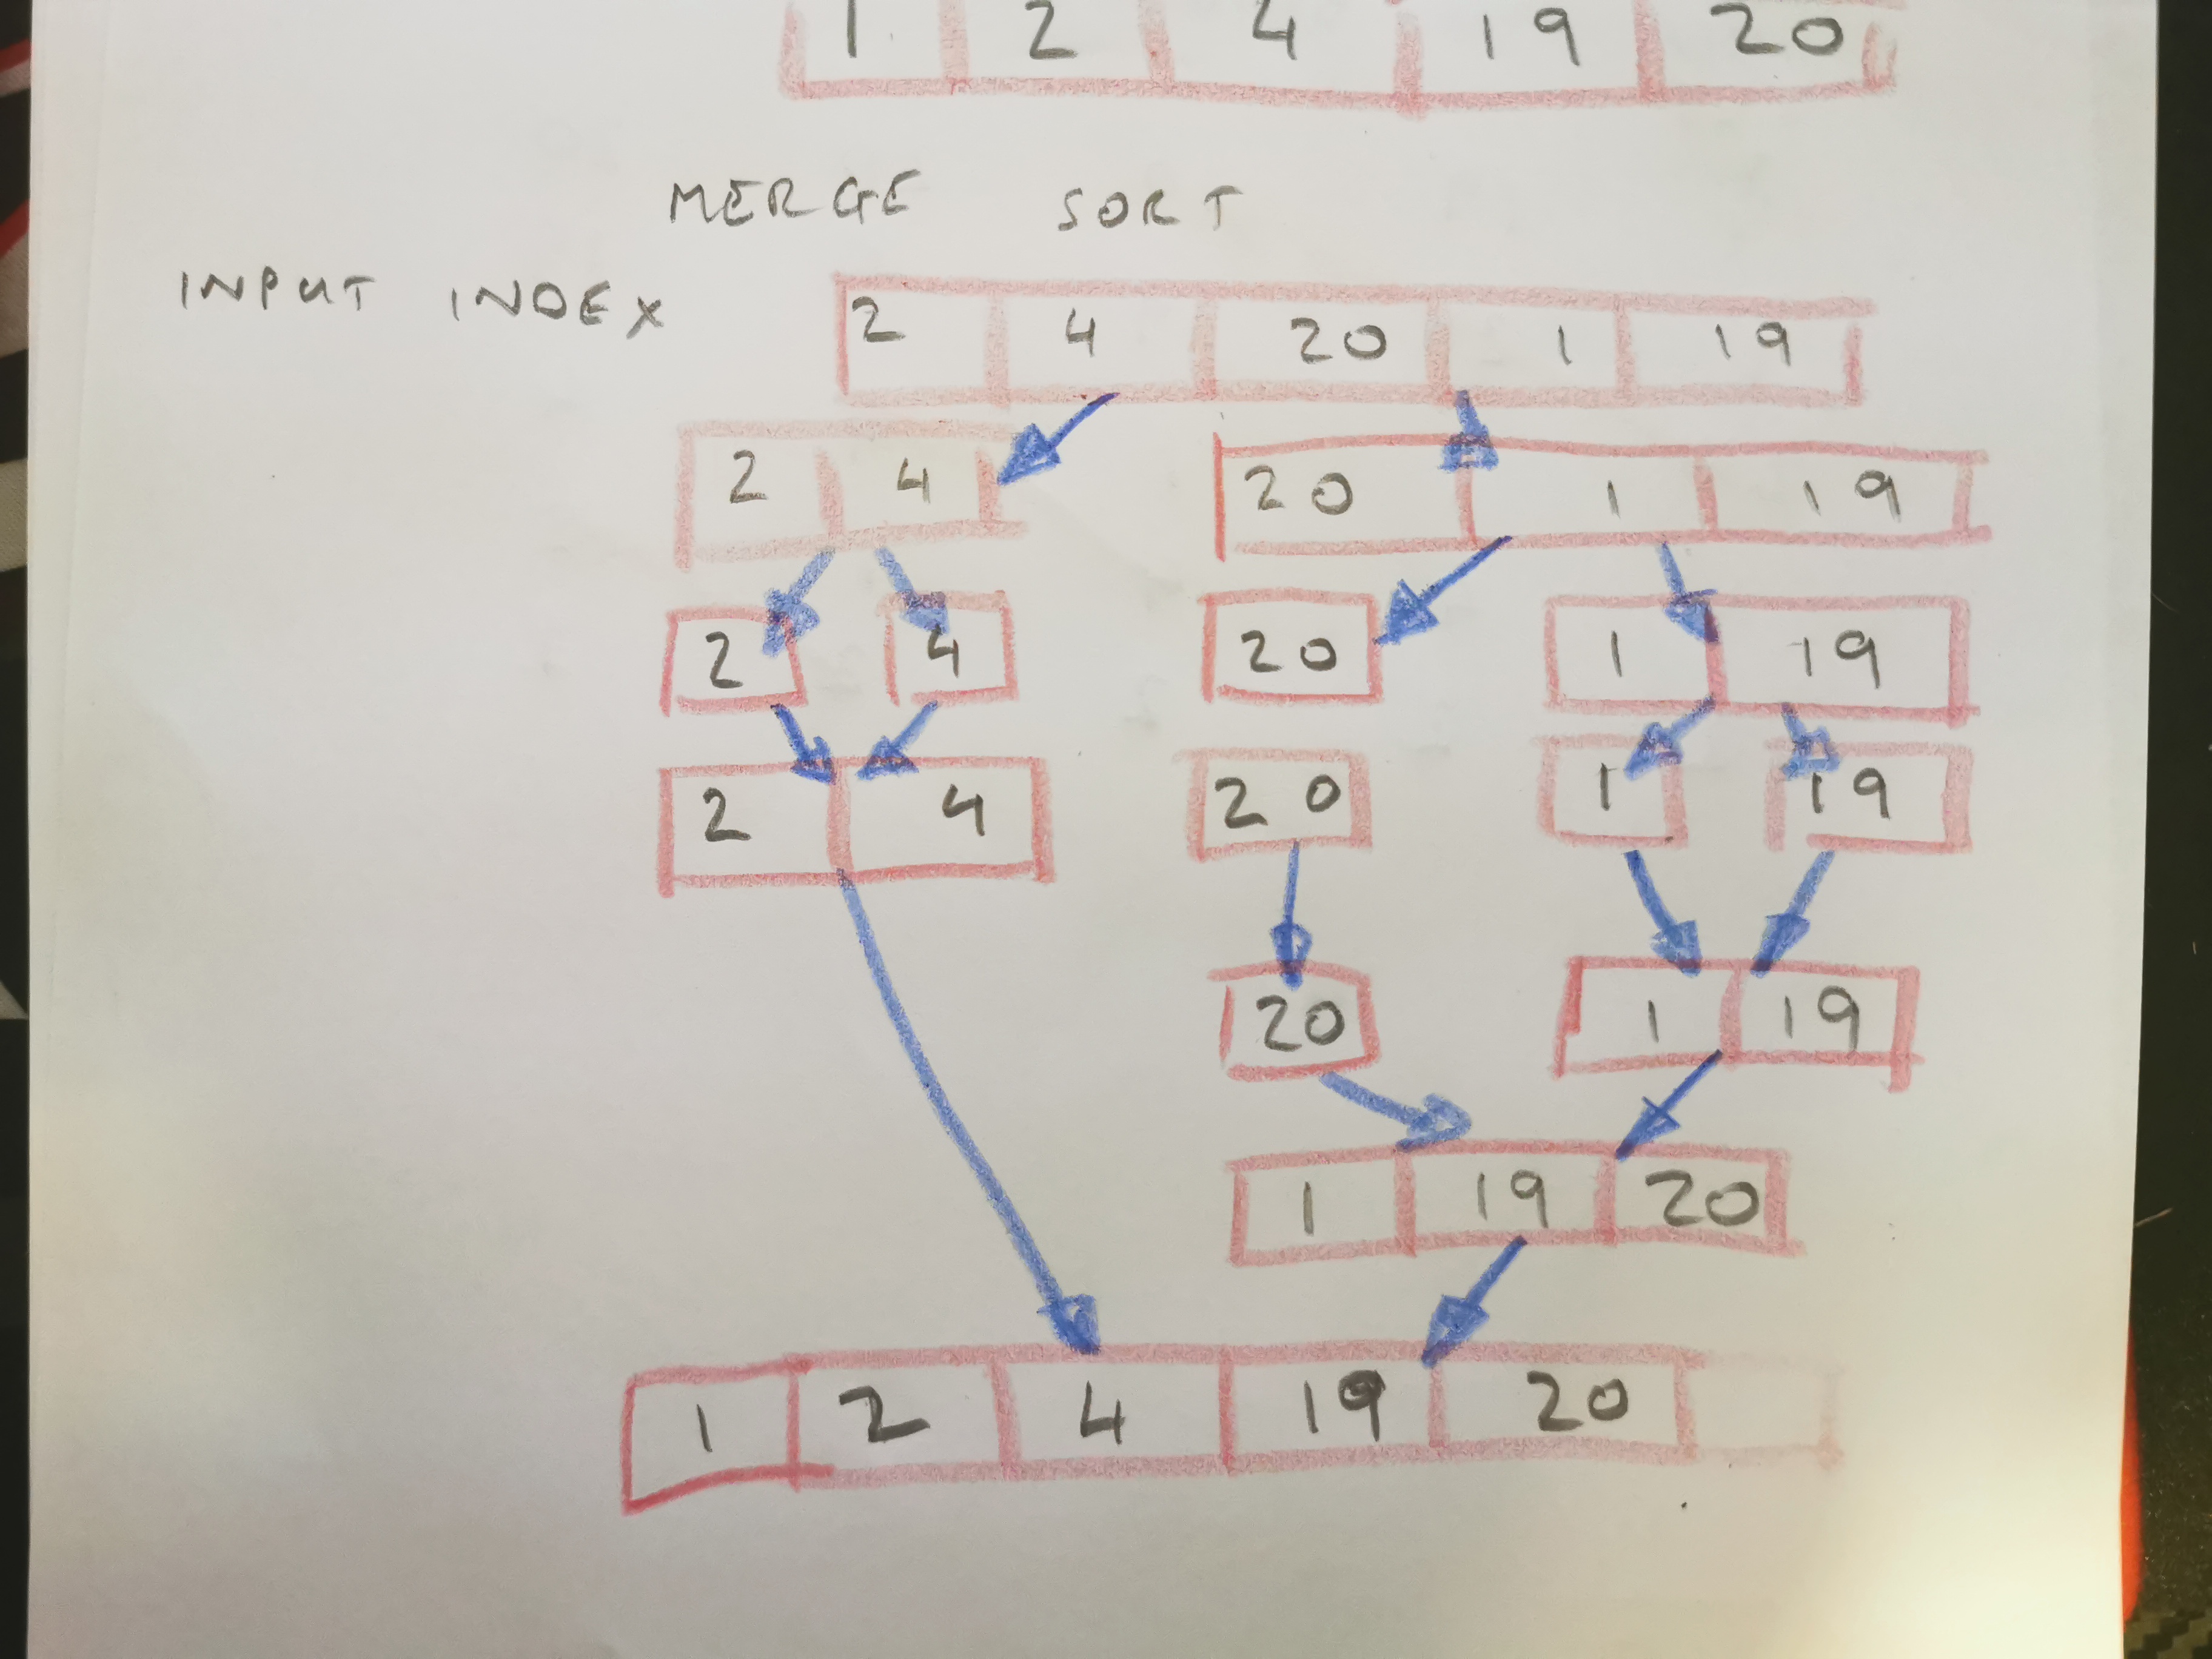 1 2 4 19 20
MERGE SORT
INPUT INDEX 2 4 20 1 19
2 4 20 1 19
2 4 20 1 19
2 4 20 1 19
20 1 19
1 19 20
1 2 4 19 20